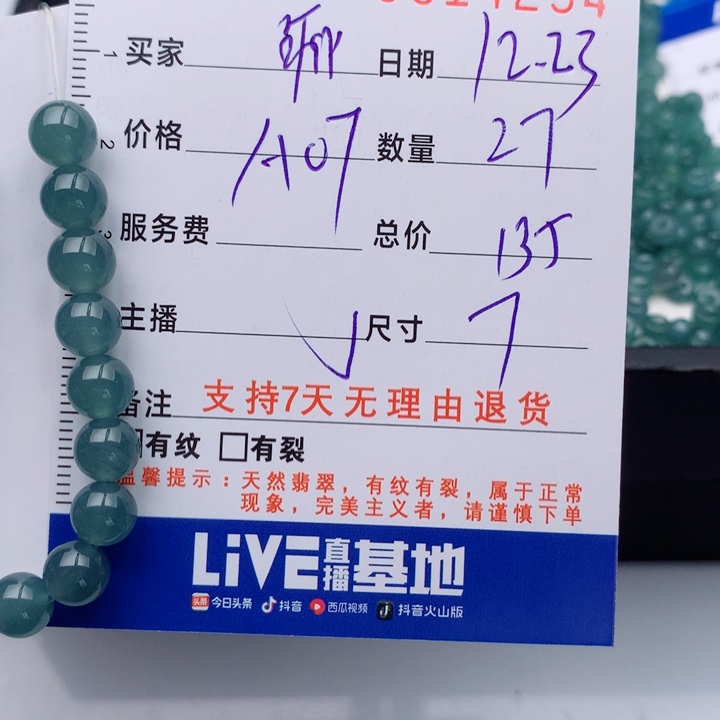 买家 日期 12-23
价格 A07 数量 27
服务费 总价 135
主播 尺寸 7
备注 支持7天无理由退货
有纹 □有裂
温馨提示：天然翡翠，有纹有裂，属于正常
现象，完美主义者，请谨慎下单
LiVE直播基地
头条 今日头条 抖音 西瓜视频 抖音火山版